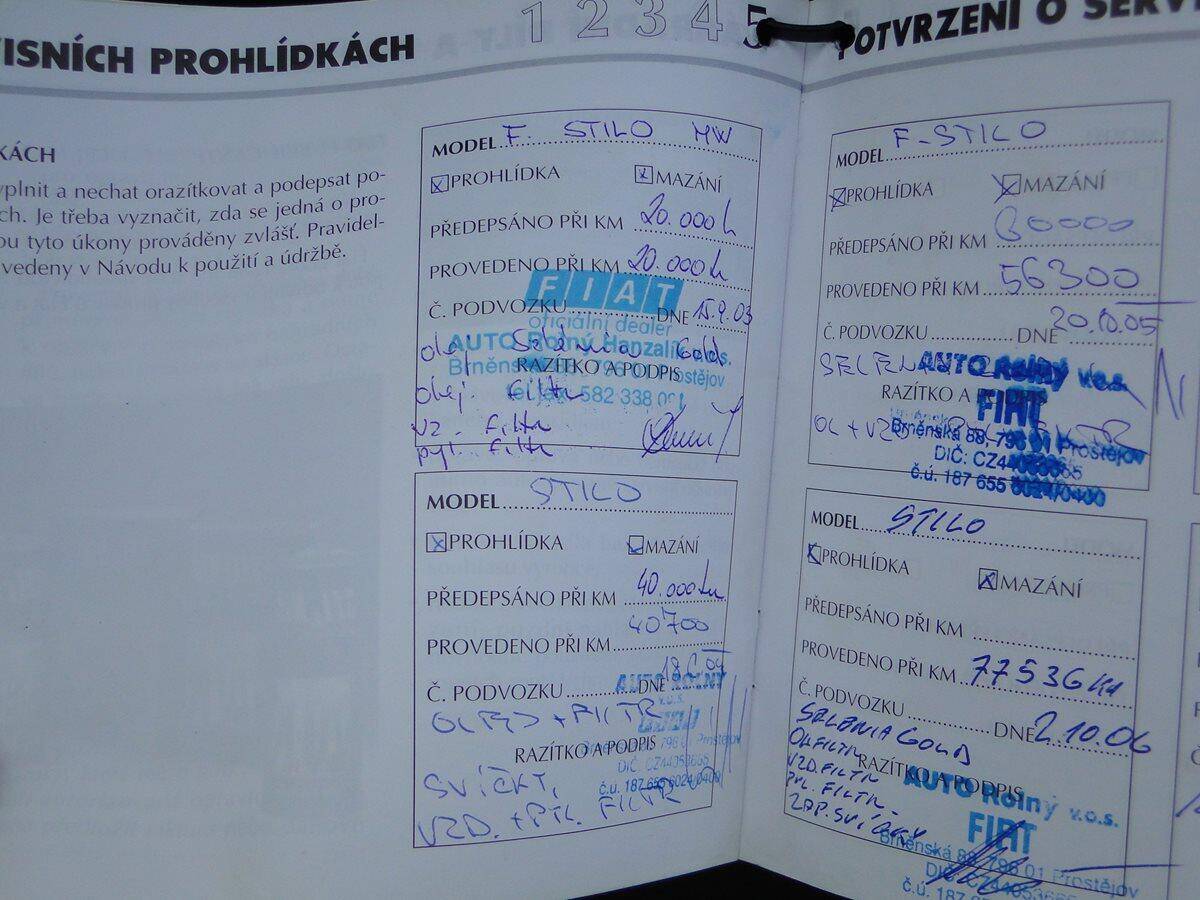 VISNÍCH PROHLÍDKÁCH
1 2 3 4 5
KÁCH
yplnit a nechat orazítkovat a podepsat po-
ch. Je třeba vyznačit, zda se jedná o pro-
ou tyto úkony prováděny zvlášť. Pravidel-
vedeny v Návodu k použití a údržbě.
MODEL F. STILO MW
PROHLÍDKA MAZÁNÍ
PŘEDEPSÁNO PŘI KM 20.000
PROVEDENO PŘI KM 20.000
FIAT
Č. PODVOZKU DNE 15.9.03
oficiální dealer
AUTO Rolný Hanzalík
olej Selénia Gold
Brněnská 88, 796 01 Prostějov
RAZÍTKO A PODPIS
olej. filtr
582 338
vz. filtr
pyl. filtr
MODEL STILO
PROHLÍDKA MAZÁNÍ
PŘEDEPSÁNO PŘI KM 40.000
PROVEDENO PŘI KM 40700
Č. PODVOZKU DNE
AUTO ROLNÝ
v.o.s.
OLEJ + FILTR
796 01 Prostějov
RAZÍTKO A PODPIS
SVÍČKY,
č.ú. 187 655 6024/0400
VZD. + FILTR
POTVRZENÍ O SERV
MODEL F-STILO
PROHLÍDKA MAZÁNÍ
PŘEDEPSÁNO PŘI KM 60000
PROVEDENO PŘI KM 56300
Č. PODVOZKU DNE 20.10.05
AUTO Rolný v.o.s.
RAZÍTKO A
FIAT
Brněnská 88, 796 01 Prostějov
DIČ: CZ44053665
č.ú. 187 655 6024/0400
MODEL STILO
PROHLÍDKA
MAZÁNÍ
PŘEDEPSÁNO PŘI KM
PROVEDENO PŘI KM 77536 KM
Č. PODVOZKU DNE 2.10.06
SELENIA GOLD
OL. FILTR
RAZÍTKO A PODPIS
VZD. FILTR
PYL. FILTR
ZAP. SVÍČKY
AUTO Rolný v.o.s.
FIAT
Brněnská 88, 796 01 Prostějov
DIČ: CZ44053665
č.ú. 187